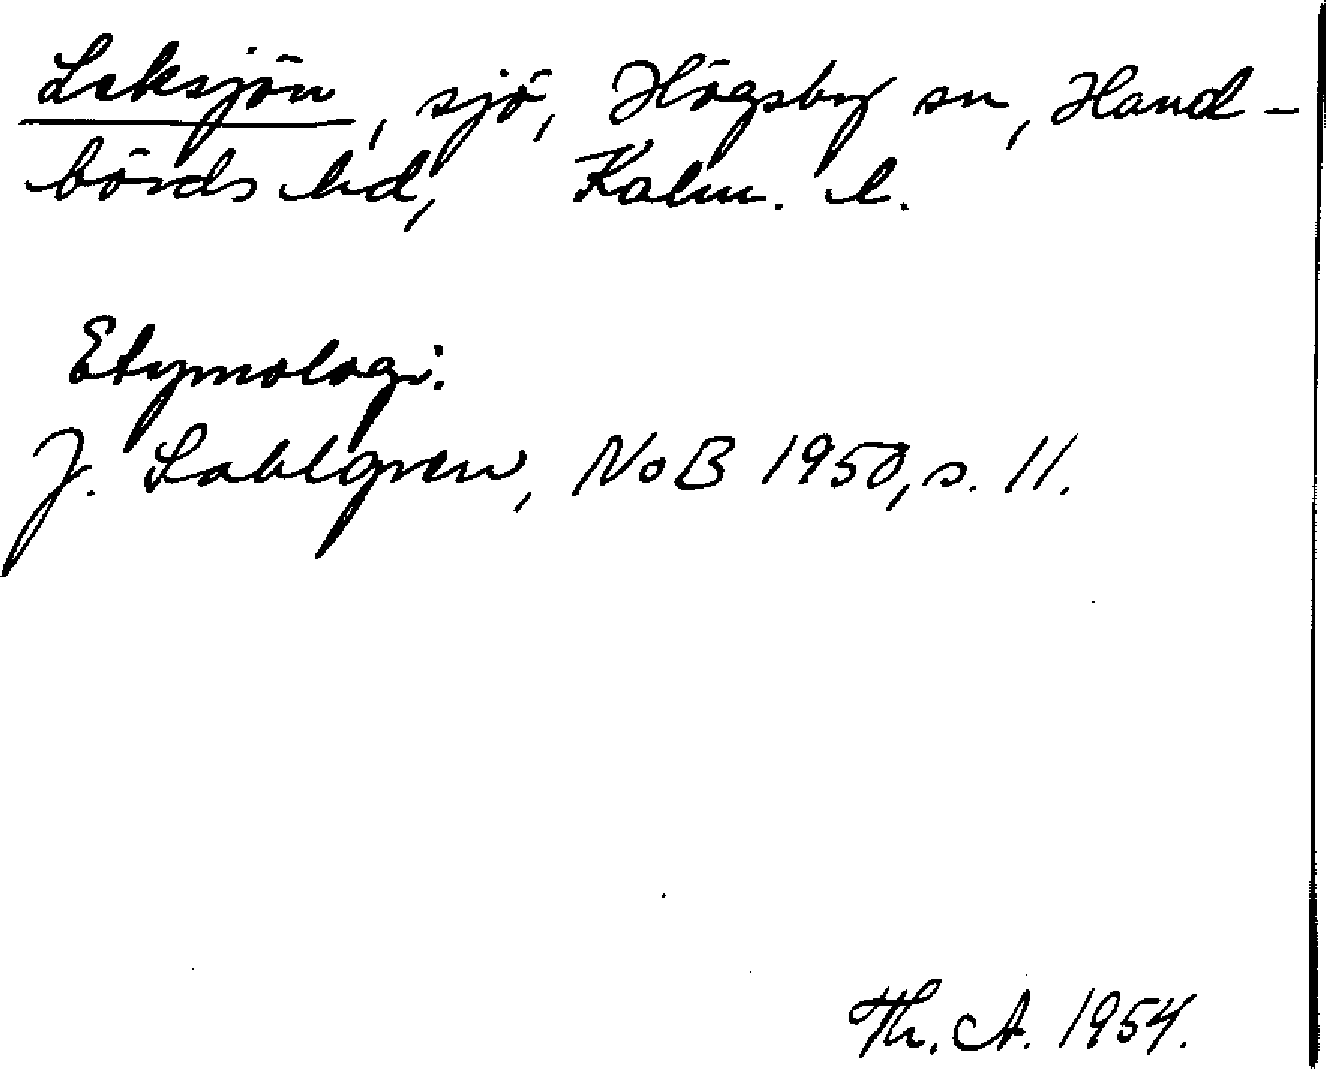 Leksjön, sjö, Högsby sn, Hand-
börds hd, Kalm. l.
Etymologi.
J. Sahlgren, NoB 1950, s. 11.
Th. A. 1954.